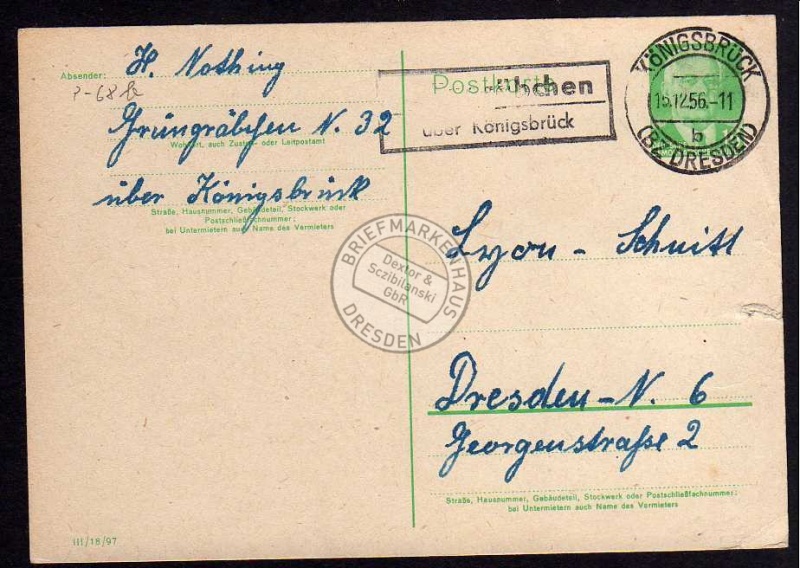 Absender: H. Nothing
P-68
Grüngräbchen N. 32
Wohnort, auch Zustell- oder Leitpostamt
über Königsbrück
Straße, Hausnummer, Gebäudeteil, Stockwerk oder
Postschließfachnummer:
bei Untermietern auch Name des Vermieters
Postkarte
bchen
über Königsbrück
KÖNIGSBRÜCK
15.12.56.-11
b
(BZ DRESDEN)
BRIEFMARKENHAUS
Dextor &
Sczibilanski
GbR
DRESDEN
Lyon - Schnitt
Dresden - N. 6
Georgenstraße 2
Straße, Hausnummer, Gebäudeteil, Stockwerk oder Postschließfachnummer:
bei Untermietern auch Name des Vermieters
III/18/97